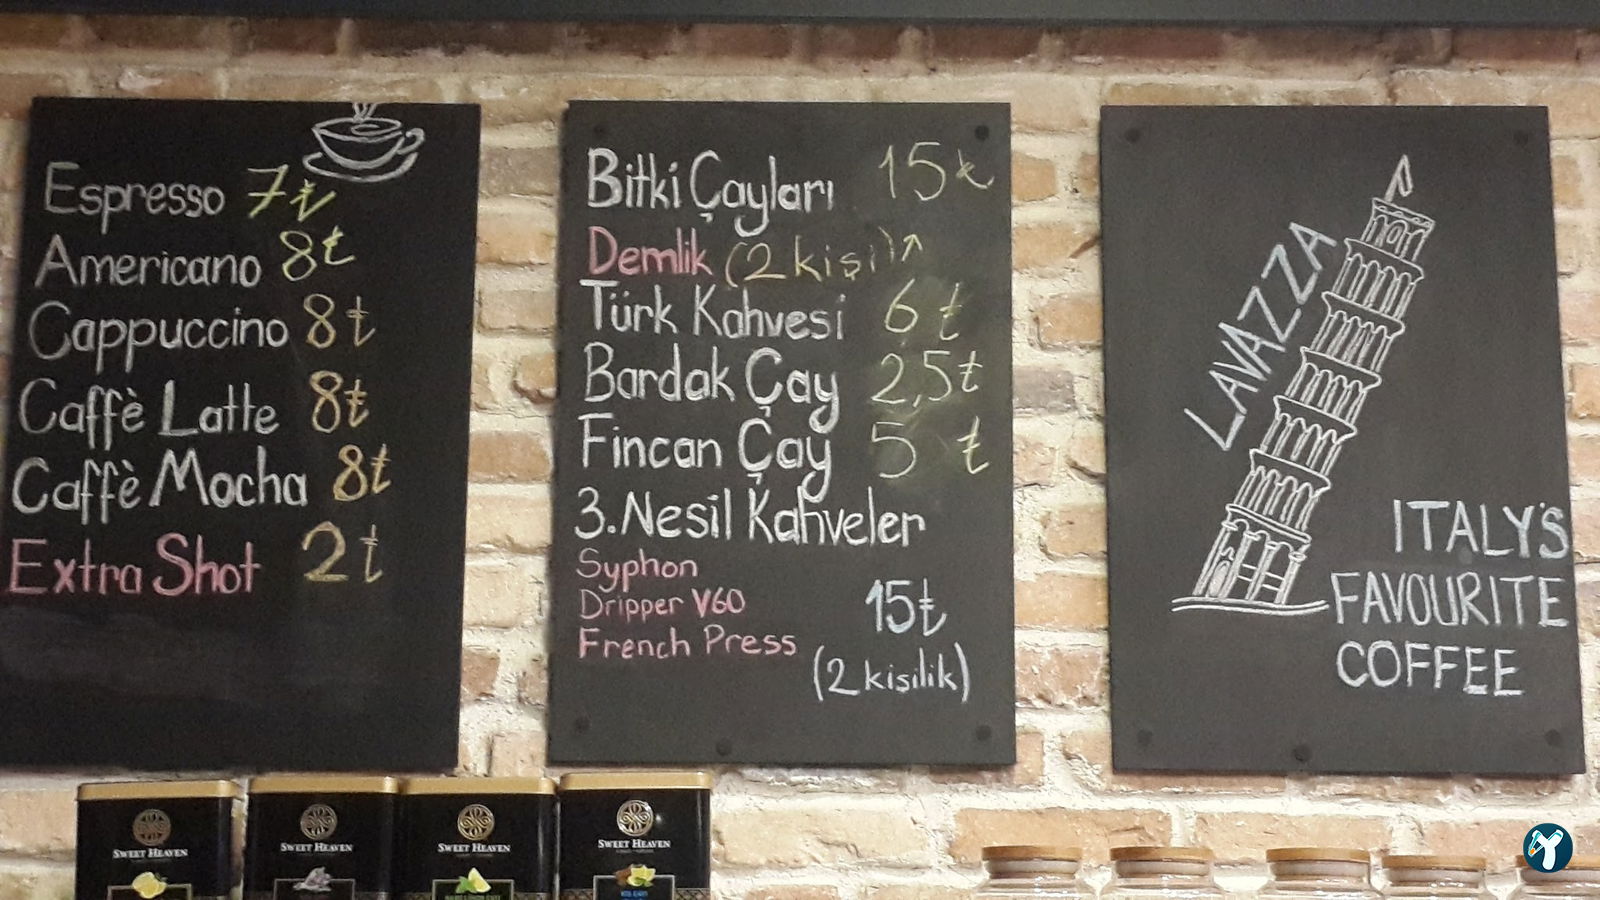 Espresso 7₺
Americano 8₺
Cappuccino 8₺
Caffè Latte 8₺
Caffè Mocha 8₺
Extra Shot 2₺
Bitki Çayları 15₺
Demlik (2 kişi)↗
Türk Kahvesi 6₺
Bardak Çay 2,5₺
Fincan Çay 5₺
3.Nesil Kahveler
Syphon
Dripper V60
French Press
15₺
(2 kişilik)
LAVAZZA
ITALY'S
FAVOURITE
COFFEE
SWEET HEAVEN
SWEET HEAVEN
SWEET HEAVEN
SWEET HEAVEN